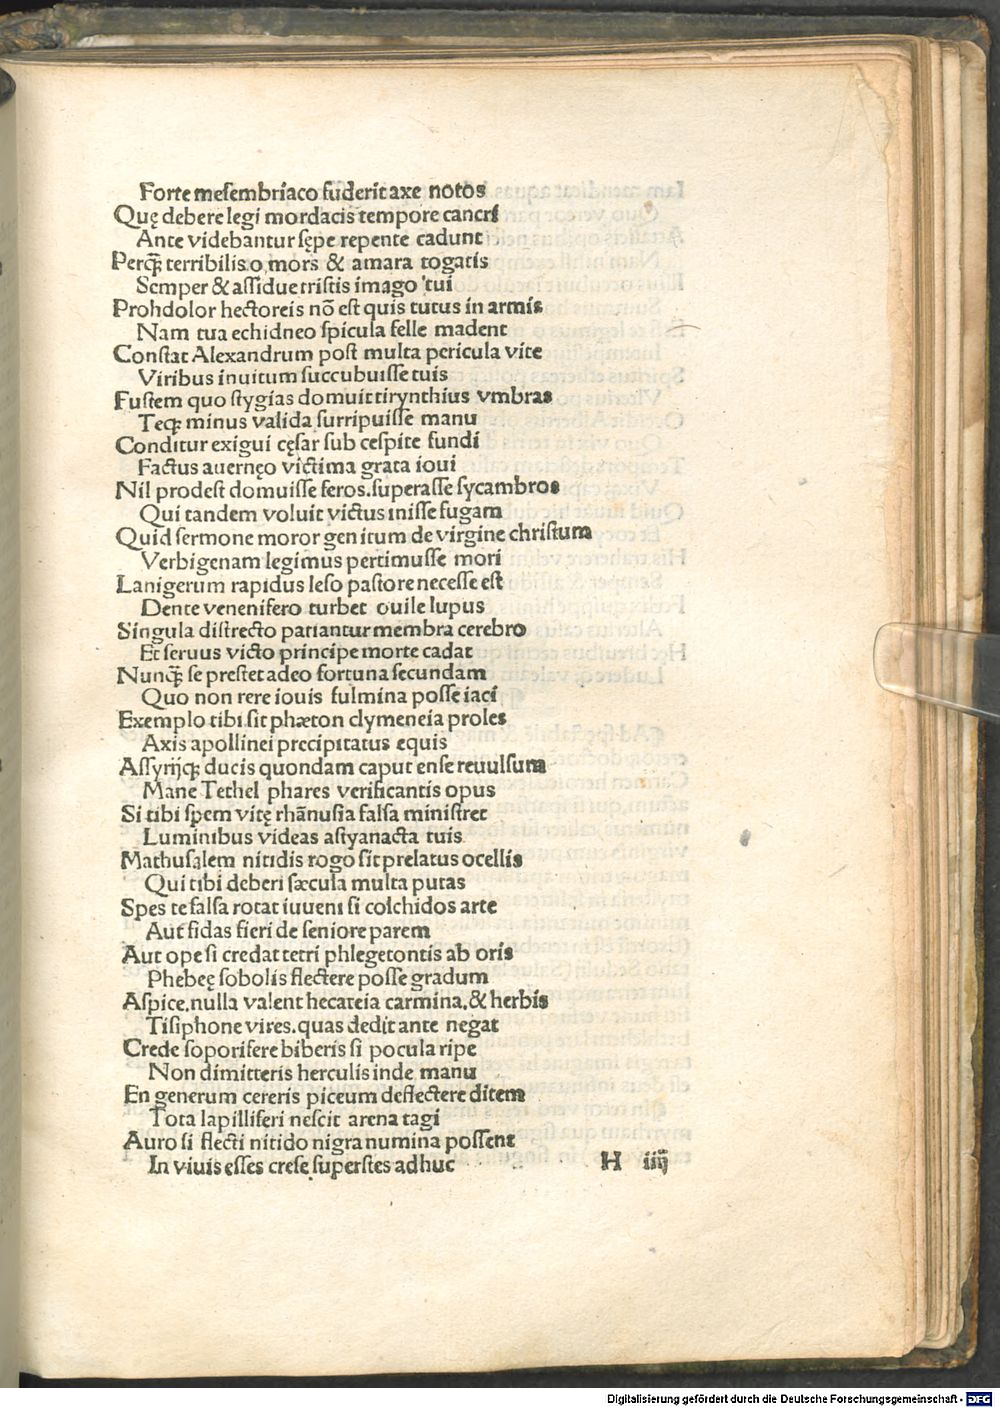 Forte mesembriaco fuderit axe notos
Quę debere legi mordacis tempore cancri
Ante videbantur sępe repente cadunt
Perq̃ terribilis o mors & amara togatis
Semper & assidue tristis imago tui
Prohdolor hectoreis nõ est quis tutus in armis
Nam tua echidneo spicula felle madent
Constat Alexandrum post multa pericula vite
Viribus inuitum succubuisse tuis
Fustem quo stygias domuit tirynthius vmbras
Teq; minus valida surripuisse manu
Conditur exigui cęsar sub cespite fundi
Factus auernęo victima grata ioui
Nil prodest domuisse feros.superasse sycambros
Qui tandem voluit victus inisse fugam
Quid sermone moror genitum de virgine christum
Verbigenam legimus pertimusse mori
Lanigerum rapidus leso pastore necesse est
Dente venenifero turbet ouile lupus
Singula distrecto pariantur membra cerebro
Et seruus victo principe morte cadat
Nunq̃ se prestet adeo fortuna secundam
Quo non rere iouis fulmina posse iaci
Exemplo tibi sit phæton clymeneia proles
Axis apollinei precipitatus equis
Assyrijq; ducis quondam caput ense reuulsum
Mane Tethel phares verificantis opus
Si tibi spem vitę rhãnusia falsa ministret
Luminibus videas astyanacta tuis
Mathusalem nitidis rogo sit prelatus ocellis
Qui tibi deberi sæcula multa putas
Spes te falsa rotat iuueni si colchidos arte
Aut fidas fieri de seniore parem
Aut ope si credat tetri phlegetontis ab oris
Phebeę sobolis flectere posse gradum
Aspice.nulla valent hecateia carmina.& herbis
Tisiphone vires.quas dedit ante negat
Crede soporifere biberis si pocula ripe
Non dimitteris herculis inde manu
En generum cereris piceum deflectere ditem
Tota lapilliferi nescit arena tagi
Auro si flecti nitido nigra numina possent
In viuis esses crese superstes adhuc H iiij
Digitalisierung gefördert durch die Deutsche Forschungsgemeinschaft - DFG